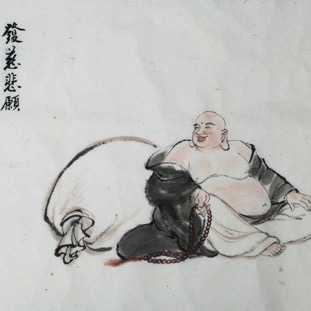 發慈悲願